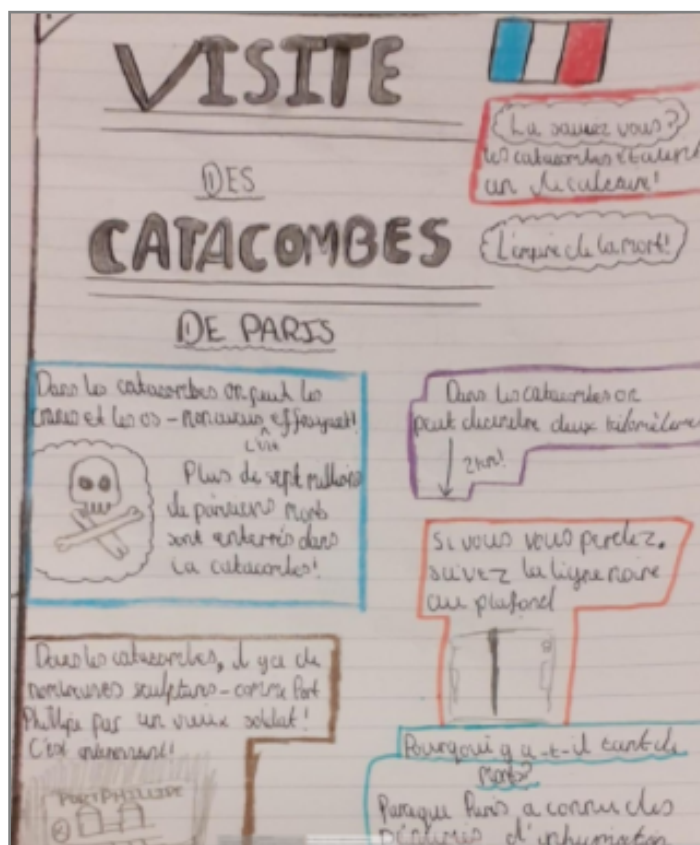 VISITE
DES
CATACOMBES
DE PARIS
La saviez vous?
les catacombes étaient
un
L'empire de la mort!
Dans les catacombes on peut les
cranes et les os - mon avis effrayant!
c'est
Plus de sept millions
de parisiens morts
sont enterrés dans
la catacombes!
Dans les catacombes on
peut decendre deux kilomètres
2km!
Si vous vous perdez,
suivez la ligne noire
au plafond
Dans les catacombes, il y a de
nombreuses sculptures - comme Port
Phillipe par un vieux soldat!
C'est
PORT PHILLIPE
Pourqoui y a-t-il tant de
morts?
Paris a connu des
d'inhumation